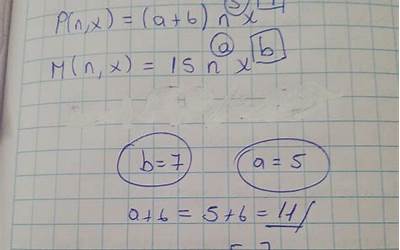 P(n,x) = (a+b) n x
M(n,x) = 15 n^a x^b
b=7 a=5
a+b = 5+6 = 11/